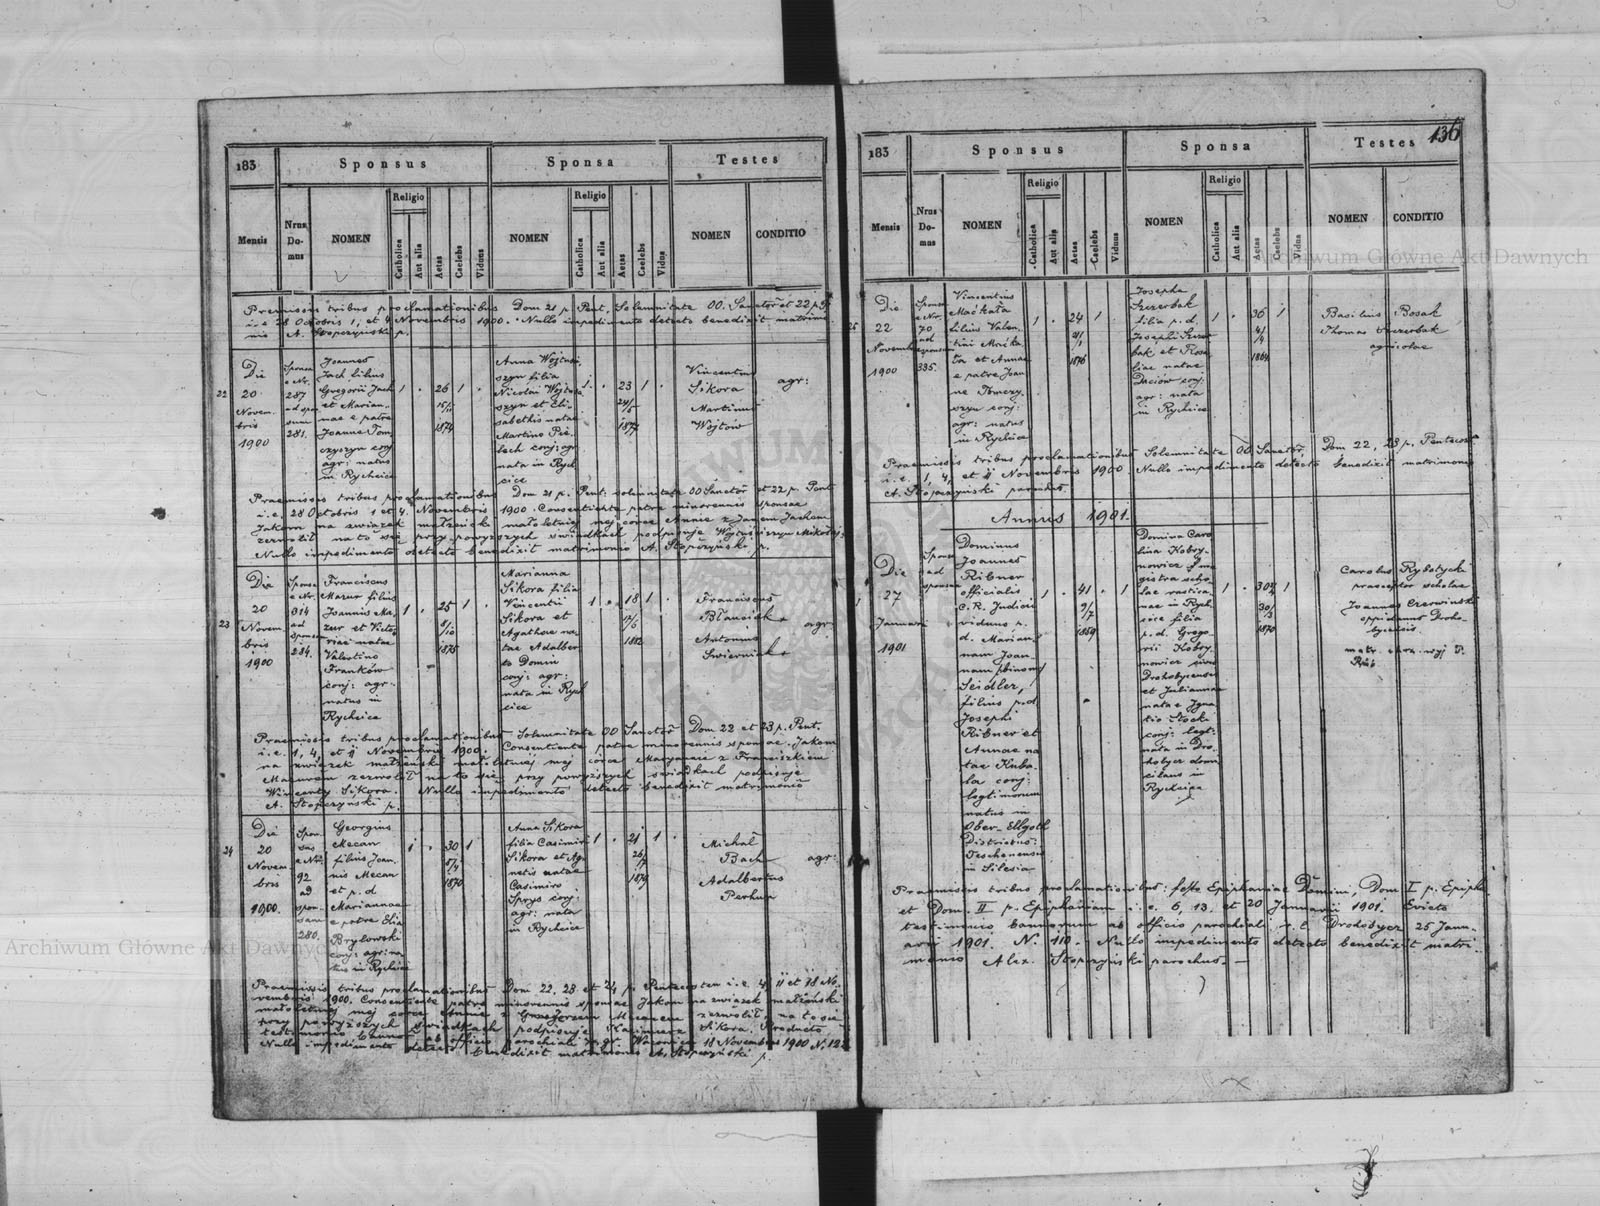 183
Sponsus
Sponsa
Testes
Mensis
Nrus Do- mus
NOMEN
Religio
Catholica
Aut alia
Aetas
Caelebs
Viduus
NOMEN
Religio
Catholica
Aut alia
Aetas
Caelebs
Vidua
NOMEN
CONDITIO
Praemissis tribus proclamationibus Dom 21 p. Pent, Solemnitate OO. Sanctor et 22 p.
i. e 28 Octobris 1, et 4 Novembris 1900. Nullo impedimento detecto benedixit matrimo
nio A. Stopczyński p.
22
Die
20
Novem.
bris
1900
Sponsi
e Nr.
287
ad spon
sam
281.
Joannes
Jach filius
Gregorii Jach
et Marian-
nae e patre
Joanne Tom
czyszyn conj
agr: natus
in Rychcice
1 . 26 1 .
15/11
1874
Anna Wojtusi
szyn filia
Nicolai Wojtusi
szyn et Eli-
sabethis natae
Martino Pie-
lech conj: agr
nata in Rych
cice
1 . 23 1 .
1877
Vincentius
Sikora
Martinus
Wójtów
agr:
Praemissis tribus proclamationibus Dom 21 p. Pent. solemnitate OO Sanctor et 22 p. Pent
i. e. 28 Octobris 1 et 4. Novembris 1900. Consentiente patre minorennis sponsae
Jakom na związek małżeński małoletniej mej córce Annie z Janem Jachem
zezwolił na to się przy powyższych świadkach podpisuje Wojtusiszyn Mikołaj.
Nullo impedimento detecto benedixit matrimonio A. Stopczyński p.
23
Die
20
Novem.
bris
1900
Sponsi
e Nr.
314
ad
sponsam
284.
Franciscus
Mazur filius
Joannis Ma-
zur et Victo
riae natae
Valentino
Franków
conj: agr:
natus in
Rychcice
1 . 25 1 .
8/10
1875
Marianna
Sikora filia
Vincentii
Sikora et
Agathae na-
tae Adalber
to Domin
conj: agr:
nata in Rych
cice
1 . 18 1 .
1882
Franciscus
Błauciak +
Antonius
Swierniak +
agr:
Praemissis tribus proclamationibus Solemnitate OO Sanctor Dom 22 et 23 p. Pent.
i. e. 1, 4, et 11 Novembris 1900. Consentiente patre minorennis sponsae. Jakom
na związek małżeński małoletniej mej córce Maryannie z Franciszkiem
Mazurem zezwolił na to się przy powyższych świadkach podpisuje
Wincenty Sikora. Nullo impedimento detecto benedixit matrimonio
A. Stopczyński p.
24
Die
20
Novem
bris
1900.
Spon-
sus
e Nr.
92
ad
spon-
sam
280.
Georgius
Mecan
filius Joan-
nis Mecan
et p. d
Mariannae
e patre Elia
Brylowski
conj: agr: na
tus in Rychcice
1 . 30 1
5/4
1870
Anna Sikora
filia Casimiri
Sikora et Ag-
netis natae
Casimiro
Sprys conj:
agr: nata
in Rychcice
1 . 21 1 .
26/7
1879
Michał
Bach
Adalbertus
Perhun
agr:
Praemissis tribus proclamationibus Dom 22, 23 et 24 p. Pentecosten i. e. 4, 11 et 18 No.
vembris 1900. Consentiente patre minorennis sponsae Jakom na związek małżeński
małoletniej mej córce Annie z Grzegorzem Mecanem zezwolił, na to się
przy powyższych świadkach podpisuje Kazimierz Sikora. Producto
testimonio bannorum ab officio parochiali r. gr. 18 Novembris 1900 N. 122
Nullo impedimento detecto benedixit matrimonio A. Stopczyński p.
136
183
Sponsus
Sponsa
Testes
Mensis
Nrus Do- mus
NOMEN
Religio
Catholica
Aut alia
Aetas
Caelebs
Viduus
NOMEN
Religio
Catholica
Aut alia
Aetas
Caelebs
Vidua
NOMEN
CONDITIO
25
Die
22
Novembr
1900
Sponsi
e Nr.
70
ad
sponsam
335.
Vincentius
Maćkała
filius Valen-
tini Maćka
ła et Annae
e patre Joan
ne Tomczy-
szyn conj:
agr: natus
in Rychcice
1 . 24 1
1876
Josepha
Szczerbak
filia p. d.
Josephi Szczer
bak et Rosa
liae natae
Daciów conj.
agr: nata
in Rychcice
1 . 36 1
4/4
1864
Basilius Bosak
Thomas Szczerbak
agricolae
Praemissis tribus proclamationibus Solemnitate OO Sanctor, Dom 22, 23 p. Pentecost
i. e. 1, 4, et 11 Novembris 1900 Nullo impedimento detecto benedixit matrimonio
A. Stopczyński parochus.
Annus 1901.
1
Die
27
Januarii
1901
Sponsi
ad
sponsam
Dominus
Joannes
Ribner
officialis
C. R. Judicii
viduus p.
d. Marian-
nam Joan-
nam binom
Seidler,
filius p.d.
Josephi
Ribner et
Annae na
tae Kuba-
la conj:
legtimorum
natus in
Ober-Ellgoth
Districtus:
Teschenensis
in Silesia
1 . 41 . 1
9/7
1859
Domina Caro
lina Kobry-
nowicz ma
gistra scho
lae rustica
nae in Rych
cice filia
p. d. Grego
rii Kobry-
nowicz civis
Drohobycensis
et Juliannae
natae Igna
tio Stocki
conj: legt:
nata in Dro
hobycz domi
cilans in
Rychcice
1 . 30 1
30/3
1870
Carolus Rybotycki
praeceptor scholae
Joannes Czerwiński
oppidanus Droho-
bycensis
Praemissis tribus proclamationibus: festo Epiphaniae Domini, Dom I p. Epipha.
et Dom. II p. Epiphaniam i. e. 6, 13. et 20 Januarii 1901. Evicto
testimonio bannorum ab officio parochiali r. l. Drohobycz 25 Janu-
arii 1901. N. 110. Nullo impedimento detecto benedixit matri-
monio Alex. Stopczyński parochus. —
Archiwum Główne Akt Dawnych
Archiwum Główne Akt Dawnych